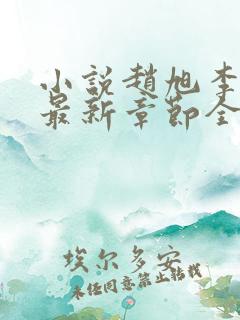 小説趙旭李
最新章節全
埃尔多安
未经同意禁止转载